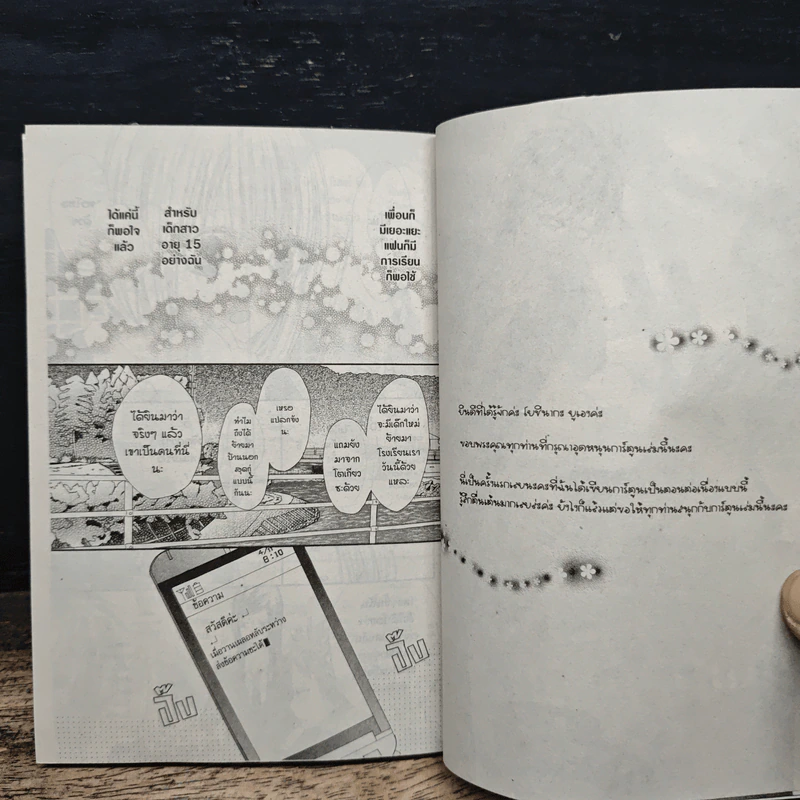 เพื่อนก็
มีเยอะแยะ
แฟนก็มี
การเรียน
ก็พอใช้
สำหรับ
เด็กสาว
อายุ 15
อย่างฉัน
ได้แค่นี้
ก็พอใจ
แล้ว
ได้ยินมาว่า
จะมีเด็กใหม่
ย้ายมา
โรงเรียนเรา
วันนี้ด้วย
แหละ
แถมยัง
มาจาก
โตเกียว
ซะด้วย
เหรอ
แปลกจัง
นะ
ทำไม
ถึงได้
ย้ายมา
บ้านนอก
สุดกู่
แบบนี้
กันนะ
ได้ยินมาว่า
จริงๆ แล้ว
เขาเป็นคนที่นี่
นะ
8:10
ข้อความ
สวัสดีค่ะ
เมื่อวานเผลอหลับระหว่าง
ส่งข้อความซะได้
ปี๊บ
ปี๊บ
ยินดีที่ได้รู้จักค่ะ โยชินากะ ยูเองค่ะ
ขอบพระคุณทุกท่านที่กรุณาอุดหนุนการ์ตูนเล่มนี้นะคะ
นี่เป็นครั้งแรกเลยนะคะที่ฉันได้เขียนการ์ตูนเป็นตอนต่อเนื่องแบบนี้
รู้สึกตื่นเต้นมากเลยล่ะค่ะ ยังไงก็แล้วแต่ขอให้ทุกท่านสนุกกับการ์ตูนเล่มนี้นะคะ